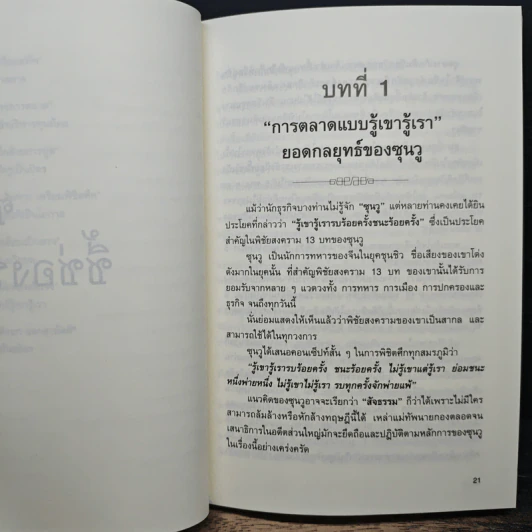 บทที่ 1
“การตลาดแบบรู้เขารู้เรา”
ยอดกลยุทธ์ของซุนวู
แม้ว่านักธุรกิจบางท่านไม่รู้จัก “ซุนวู” แต่หลายท่านคงเคยได้ยิน
ประโยคที่กล่าวว่า “รู้เขารู้เรารบร้อยครั้งชนะร้อยครั้ง” ซึ่งเป็นประโยค
สำคัญในพิชัยสงคราม 13 บทของซุนวู
ซุนวู เป็นนักการทหารของจีนในยุคชุนชิว ชื่อเสียงของเขาโด่ง
ดังมากในยุคนั้น ที่สำคัญพิชัยสงคราม 13 บท ของเขานั้นได้รับการ
ยอมรับจากหลาย ๆ แวดวงทั้ง การทหาร การเมือง การปกครองและ
ธุรกิจ จนถึงทุกวันนี้
นั่นย่อมแสดงให้เห็นแล้วว่าพิชัยสงครามของเขาเป็นสากล และ
สามารถใช้ได้ในทุกวงการ
ซุนวูได้เสนอคอนเซ็ปท์สั้น ๆ ในการพิชิตศึกทุกสมรภูมิว่า
“รู้เขารู้เรารบร้อยครั้ง ชนะร้อยครั้ง ไม่รู้เขาแต่รู้เรา ย่อมชนะ
หนึ่งพ่ายหนึ่ง ไม่รู้เขาไม่รู้เรา รบทุกครั้งจักพ่ายแพ้”
แนวคิดของซุนวูอาจจะเรียกว่า “สัจธรรม” ก็ว่าได้เพราะไม่มีใคร
สามารถล้มล้างหรือหักล้างทฤษฎีนี้ได้ เหล่าแม่ทัพนายกองตลอดจน
เสนาธิการในอดีตส่วนใหญ่มักจะยึดถือและปฏิบัติตามหลักการของซุนวู
ในเรื่องนี้อย่างเคร่งครัด
21